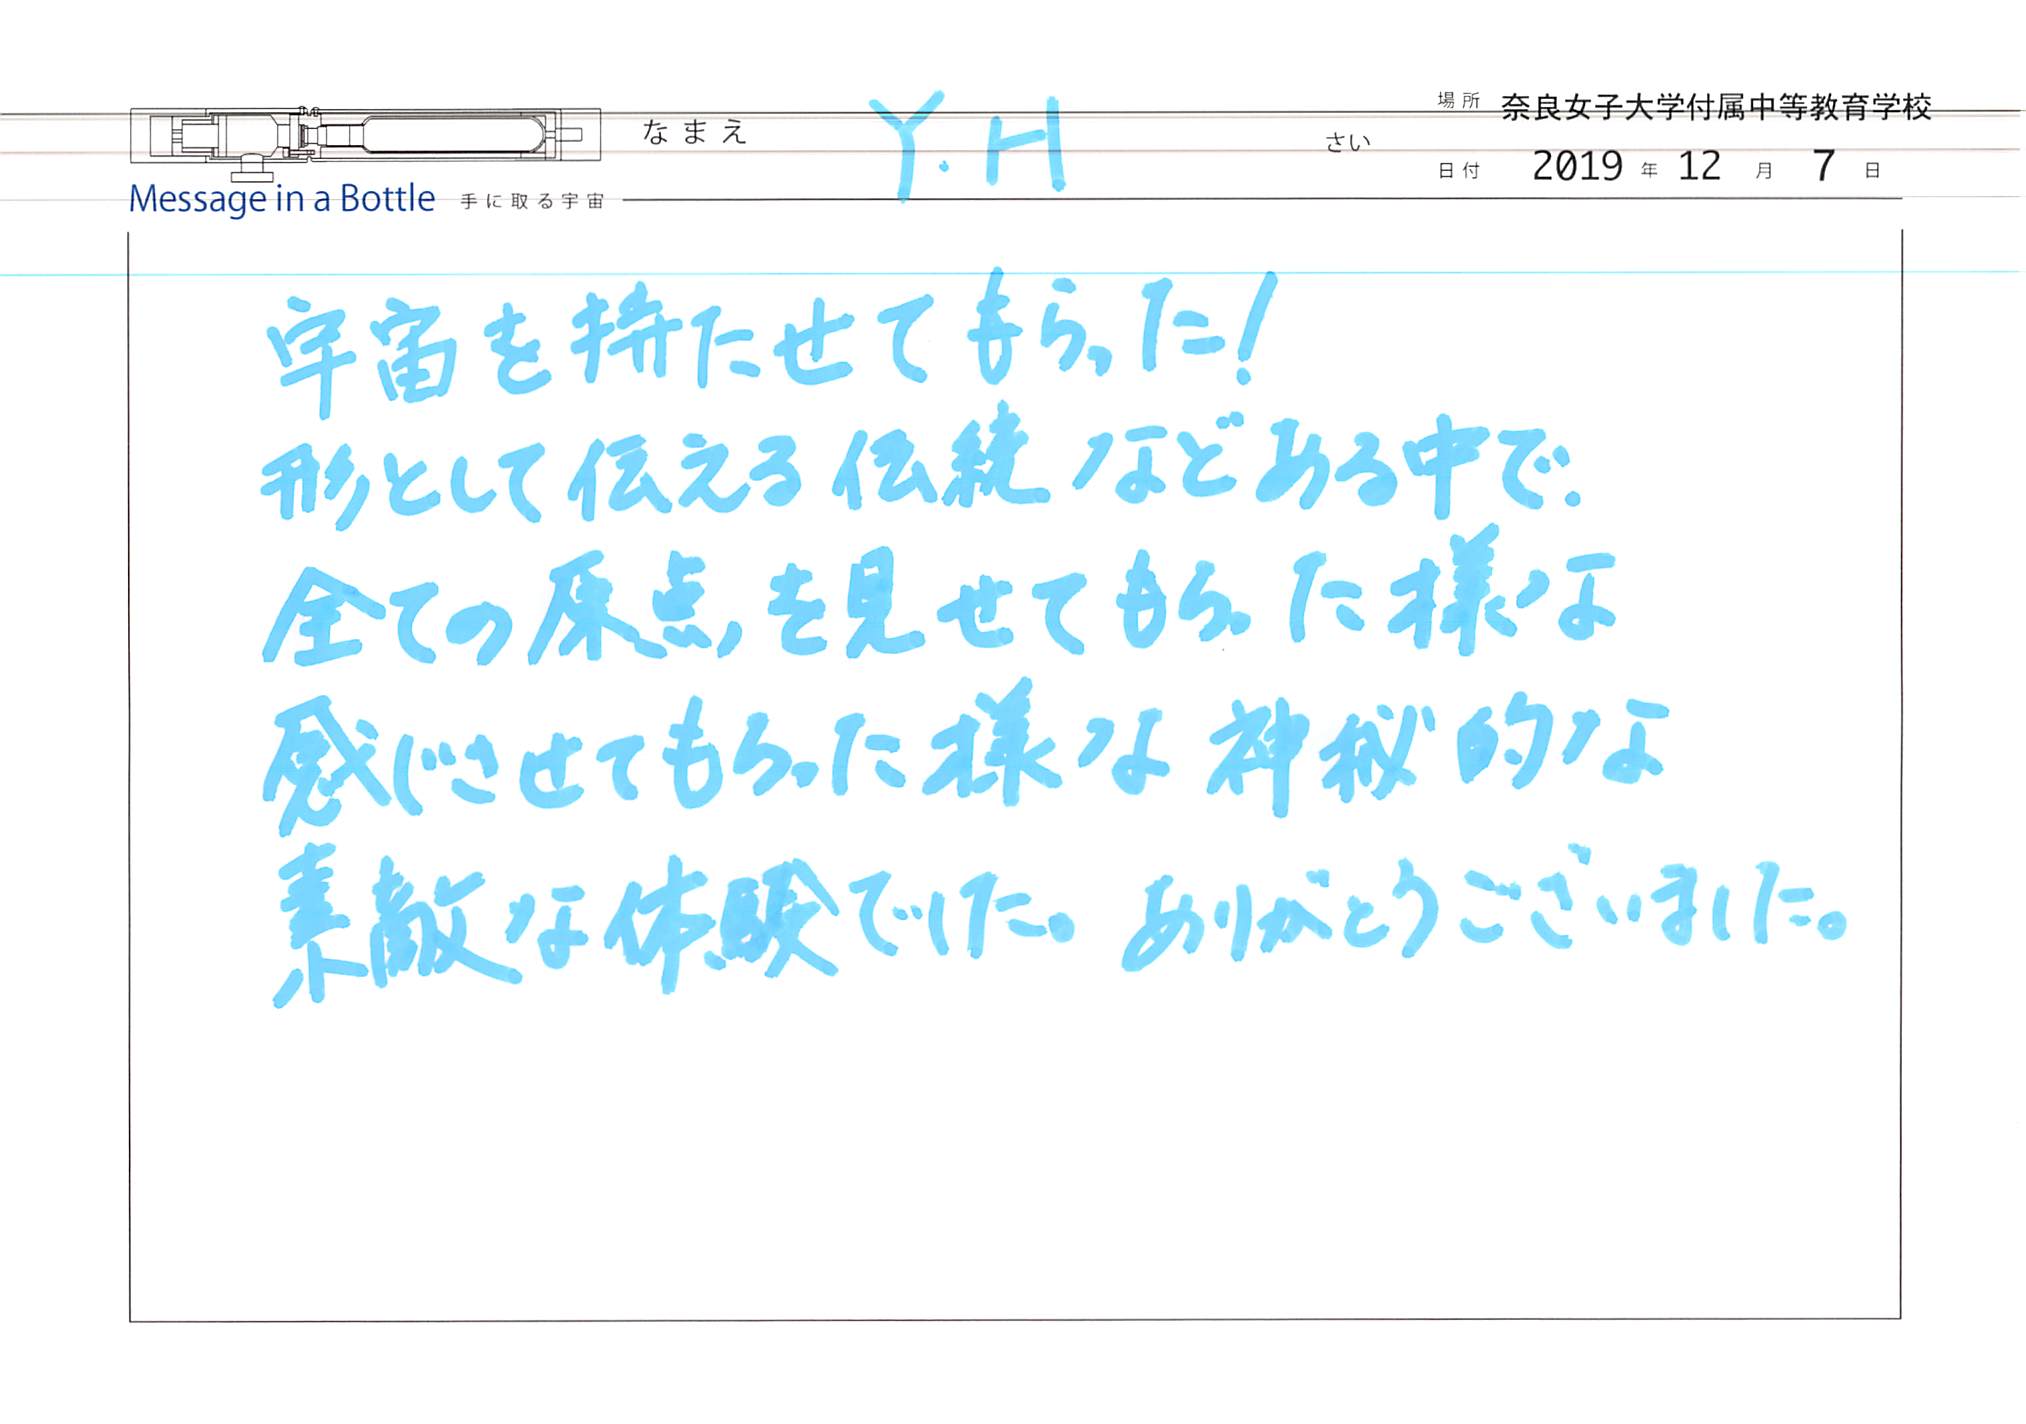 場所 奈良女子大学付属中等教育学校
なまえ Y.H さい
日付 2019 年 12 月 7 日
Message in a Bottle 手に取る宇宙
宇宙を持たせてもらった!
形として伝える伝統などある中で.
全ての原点を見せてもらった様な
感じさせてもらった様な神秘的な
素敵な体験でした。ありがとうございました。